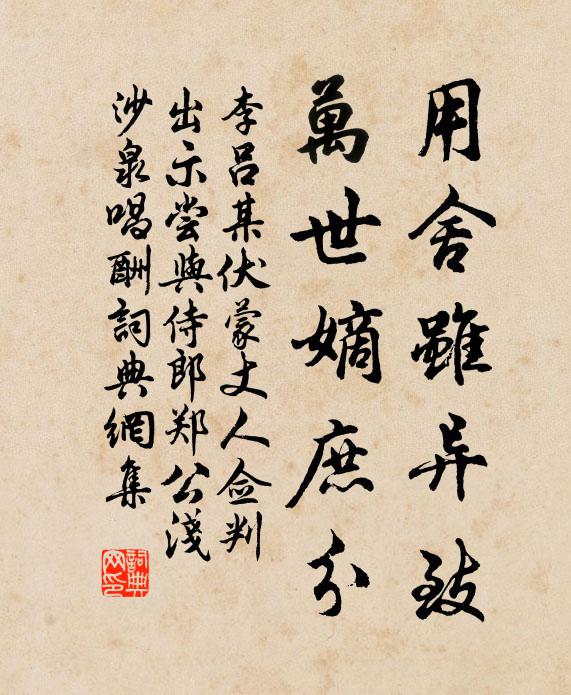 用舍雖异致
萬世嫡庶分
李呂某伏蒙丈人佥判
出示尝與侍郎郑公淺
沙泉唱酬詞典網集
詞典
网印